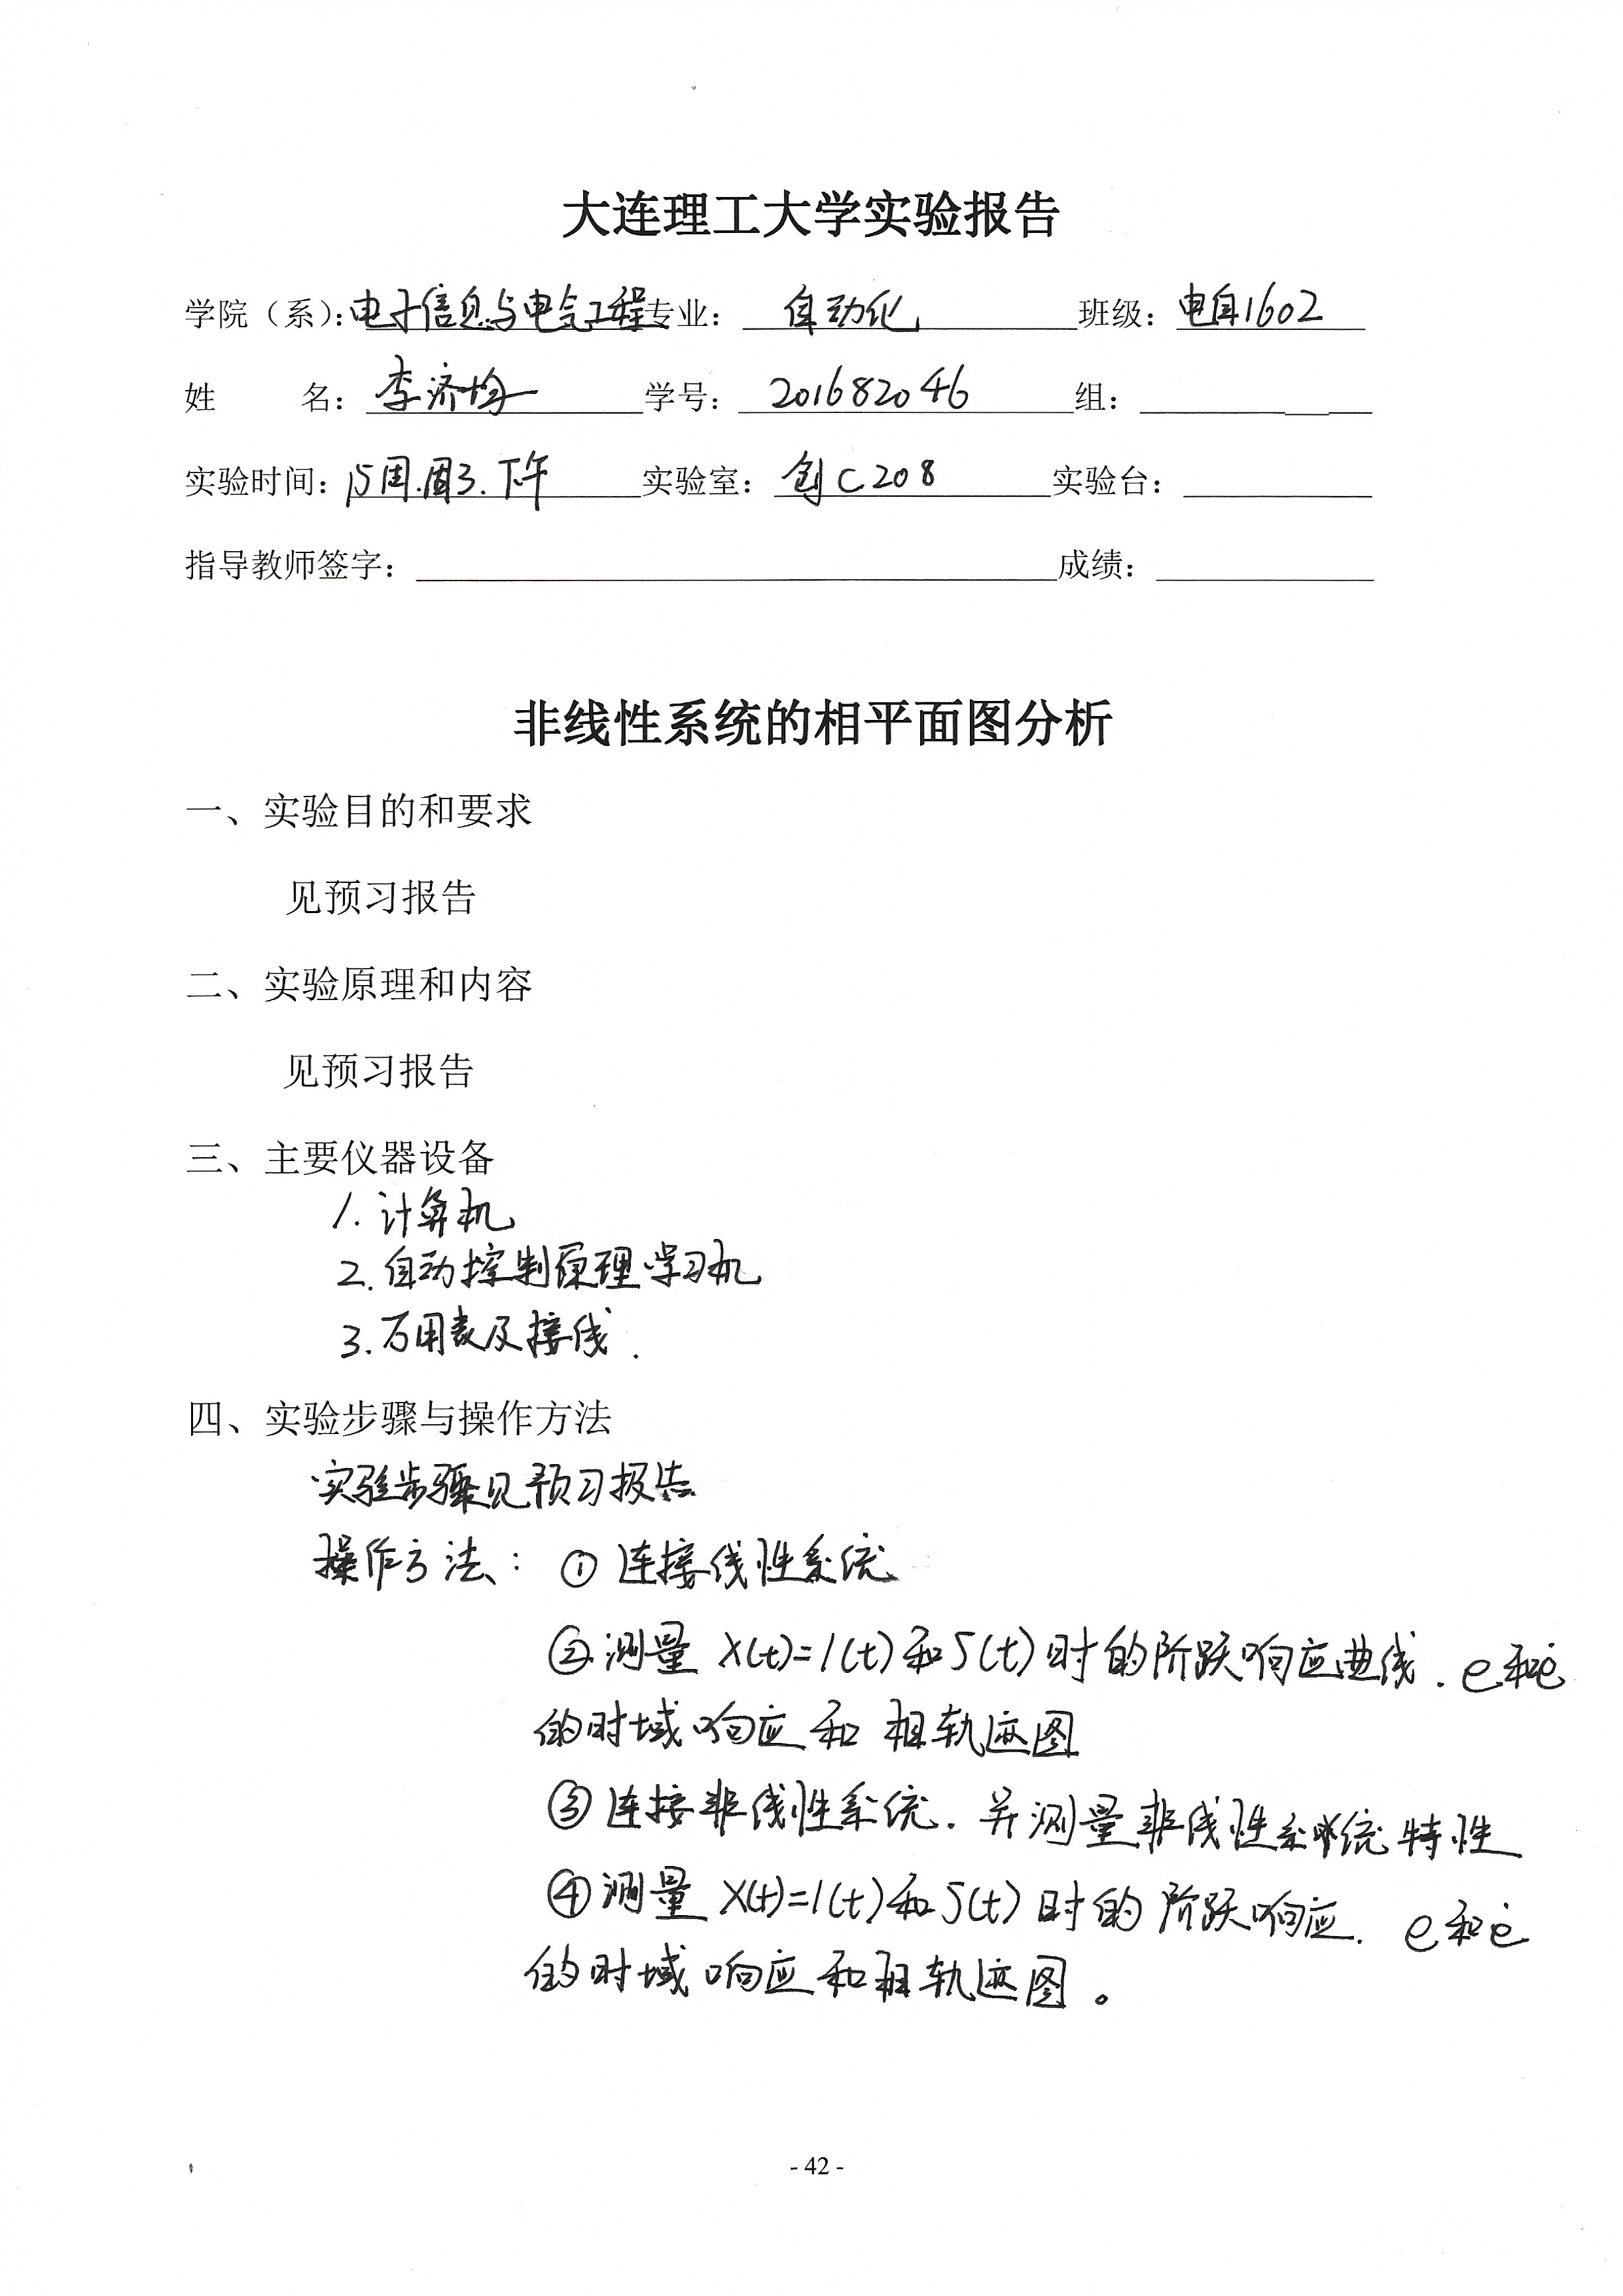 大连理工大学实验报告
学院（系）：电子信息与电气工程 专业： 自动化 班级： 电自1602
姓 名： 李济均 学号： 201682046 组：
实验时间： 15周.周3.下午 实验室： 创C208 实验台：
指导教师签字： 成绩：
非线性系统的相平面图分析
一、实验目的和要求
见预习报告
二、实验原理和内容
见预习报告
三、主要仪器设备
1. 计算机
2. 自动控制原理学习机
3. 万用表及接线.
四、实验步骤与操作方法
实验步骤见预习报告
操作方法： ① 连接线性系统
② 测量 x(t)=1(t)和5(t)时的阶跃响应曲线. e和ė
的时域响应和相轨迹图
③ 连接非线性系统. 并测量非线性系统特性
④ 测量 x(t)=1(t)和5(t)时的阶跃响应. e和ė
的时域响应和相轨迹图。
- 42 -